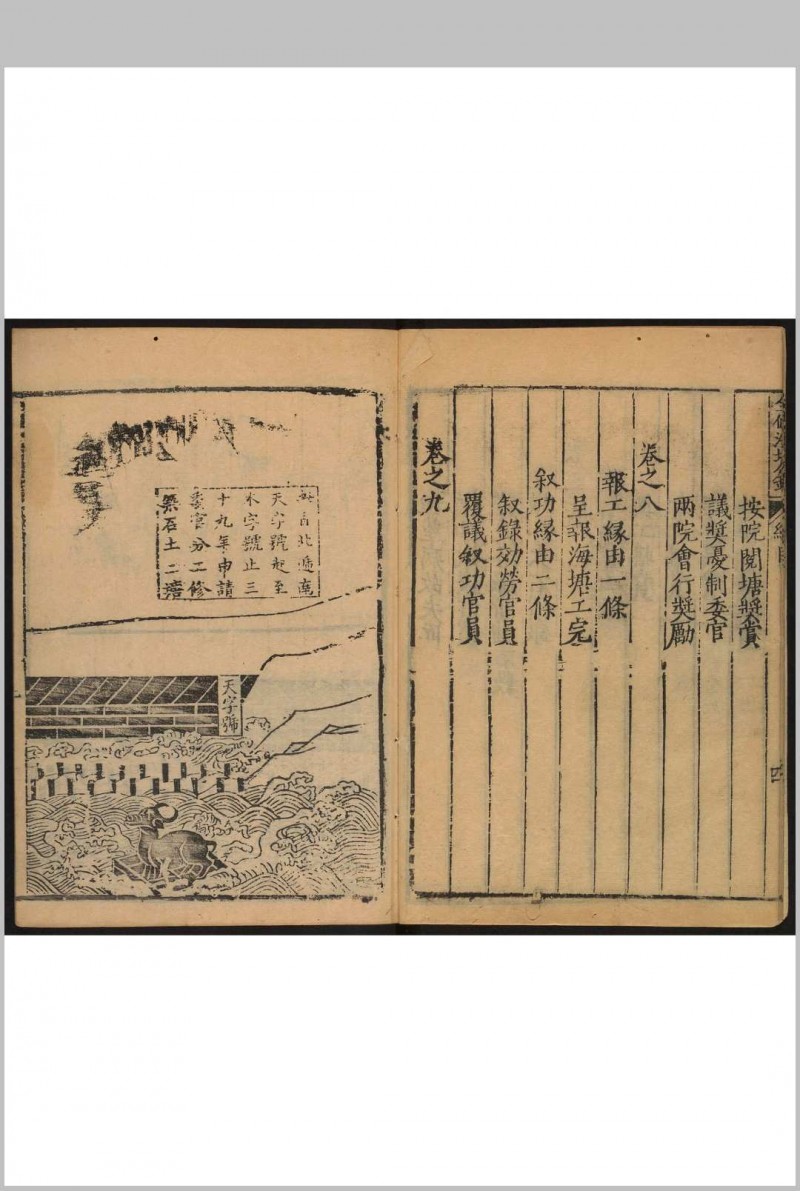 按院閱塘獎賞
議獎憂制委官
兩院會行獎勵
卷之八
報工緣由一條
呈報海塘工完
叙功緣由二條
叙錄効勞官員
覆議叙功官員
卷之九
四
天字號起至
水字號止三
十九年申請
委官分工修
築石土二塘
天字號